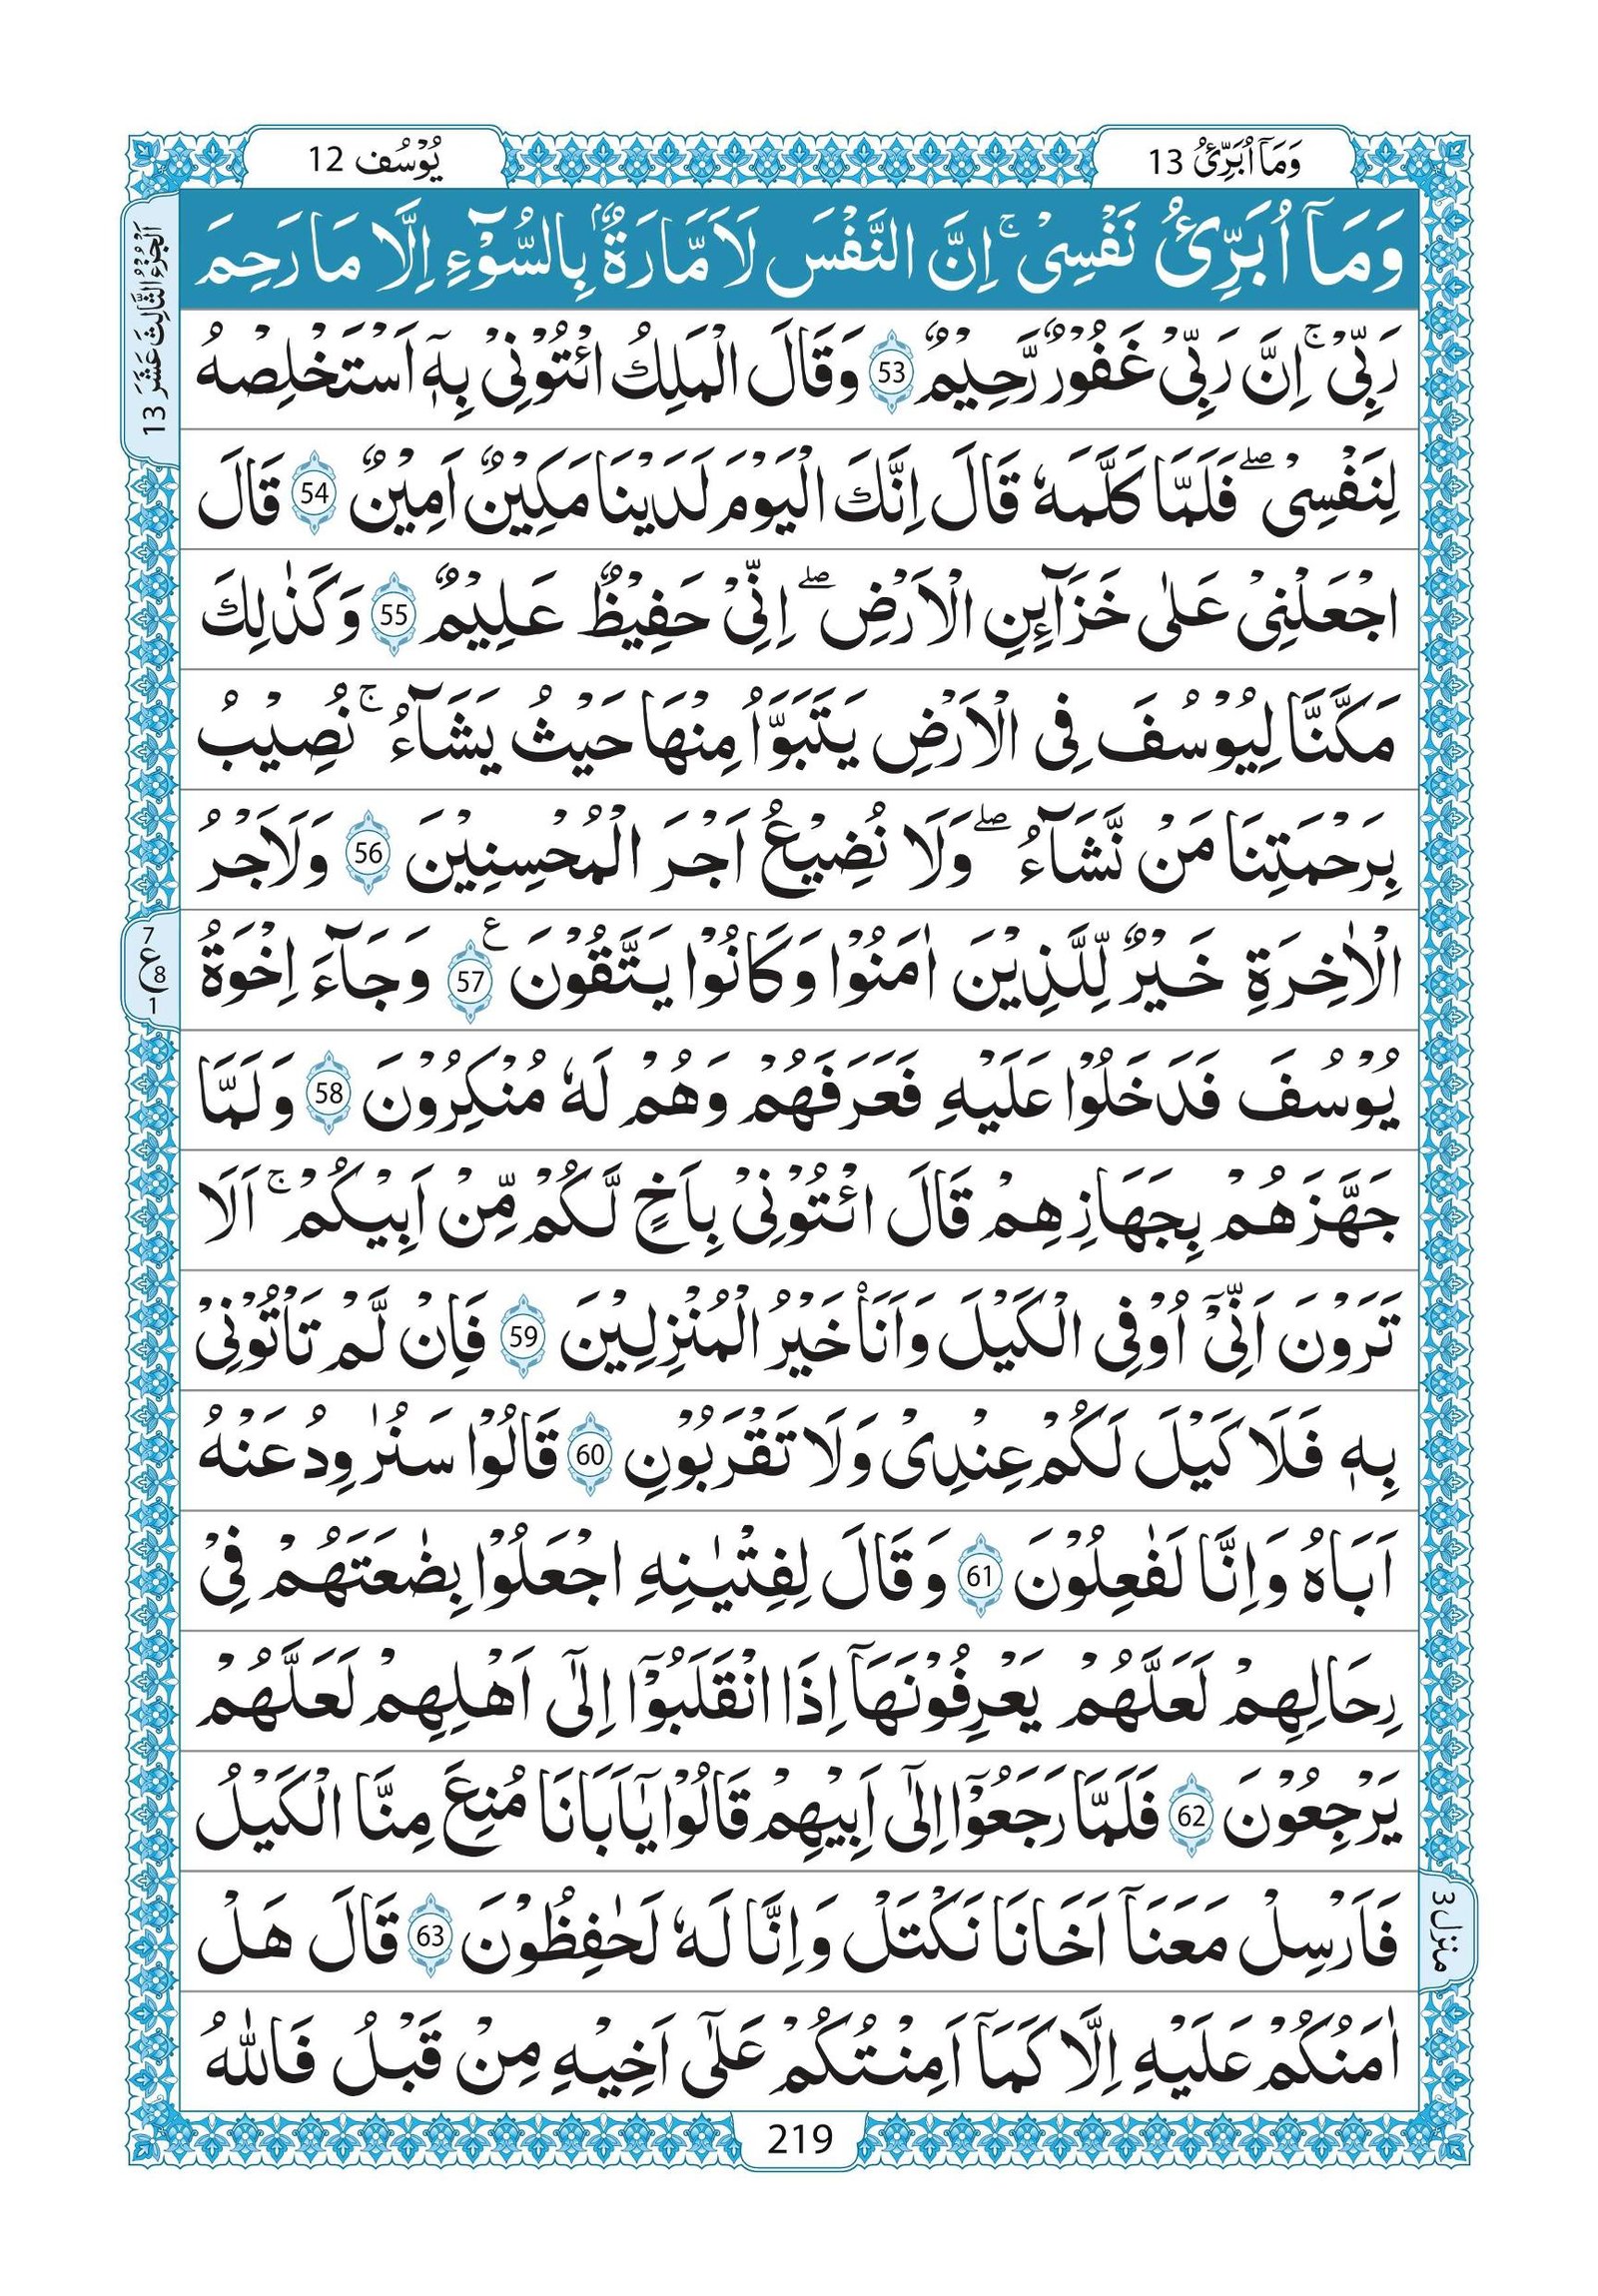 وَمَآ اُبَرِّئُ 13
يُوْسُف 12
وَمَآ اُبَرِّئُ نَفْسِىْ ۚ اِنَّ النَّفْسَ لَاَمَّارَةٌۢ بِالسُّوْٓءِ اِلَّا مَا رَحِمَ
رَبِّىْ ۚ اِنَّ رَبِّىْ غَفُوْرٌ رَّحِيْمٌ 53 وَقَالَ الْمَلِكُ ائْتُوْنِىْ بِهٖٓ اَسْتَخْلِصْهُ
لِنَفْسِىْ ۖ فَلَمَّا كَلَّمَهٗ قَالَ اِنَّكَ الْيَوْمَ لَدَيْنَا مَكِيْنٌ اَمِيْنٌ 54 قَالَ
اجْعَلْنِىْ عَلٰى خَزَآئِنِ الْاَرْضِ ۖ اِنِّىْ حَفِيْظٌ عَلِيْمٌ 55 وَكَذٰلِكَ
مَكَّنَّا لِيُوْسُفَ فِى الْاَرْضِ يَتَبَوَّاُ مِنْهَا حَيْثُ يَشَآءُ ۚ نُصِيْبُ
بِرَحْمَتِنَا مَنْ نَّشَآءُ ۖ وَلَا نُضِيْعُ اَجْرَ الْمُحْسِنِيْنَ 56 وَلَاَجْرُ
الْاٰخِرَةِ خَيْرٌ لِّلَّذِيْنَ اٰمَنُوْا وَكَانُوْا يَتَّقُوْنَ ع 57 وَجَآءَ اِخْوَةُ
يُوْسُفَ فَدَخَلُوْا عَلَيْهِ فَعَرَفَهُمْ وَهُمْ لَهٗ مُنْكِرُوْنَ 58 وَلَمَّا
جَهَّزَهُمْ بِجَهَازِهِمْ قَالَ ائْتُوْنِىْ بِاَخٍ لَّكُمْ مِّنْ اَبِيْكُمْ ۚ اَلَا
تَرَوْنَ اَنِّىْٓ اُوْفِى الْكَيْلَ وَاَنَا۠ خَيْرُ الْمُنْزِلِيْنَ 59 فَاِنْ لَّمْ تَاْتُوْنِىْ
بِهٖ فَلَا كَيْلَ لَكُمْ عِنْدِىْ وَلَا تَقْرَبُوْنِ 60 قَالُوْا سَنُرٰوِدُ عَنْهُ
اَبَاهُ وَاِنَّا لَفٰعِلُوْنَ 61 وَقَالَ لِفِتْيٰنِهِ اجْعَلُوْا بِضٰعَتَهُمْ فِىْ
رِحَالِهِمْ لَعَلَّهُمْ يَعْرِفُوْنَهَآ اِذَا انْقَلَبُوْٓا اِلٰٓى اَهْلِهِمْ لَعَلَّهُمْ
يَرْجِعُوْنَ 62 فَلَمَّا رَجَعُوْٓا اِلٰٓى اَبِيْهِمْ قَالُوْا يٰٓاَبَانَا مُنِعَ مِنَّا الْكَيْلُ
فَاَرْسِلْ مَعَنَآ اَخَانَا نَكْتَلْ وَاِنَّا لَهٗ لَحٰفِظُوْنَ 63 قَالَ هَلْ
اٰمَنُكُمْ عَلَيْهِ اِلَّا كَمَآ اَمِنْتُكُمْ عَلٰٓى اَخِيْهِ مِنْ قَبْلُ فَاللّٰهُ
اَلْجُزْءُ الثَّالِثَ عَشَرَ 13
7
ع 8
1
منزل 3
219